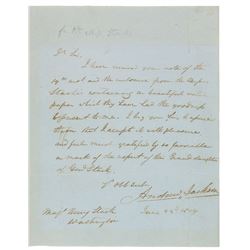 Dr Sir,
I have received your note of the
19th inst and the enclosure from the Misses
Stark containing a beautiful
paper which they have had the goodness
to present to me. I beg you
that I accept it with pleasure
and feel most gratified by so
a mark of the respect of the Grand daughters
of Genl Stark.
Andrew Jackson
Majr Henry Stark
Washington